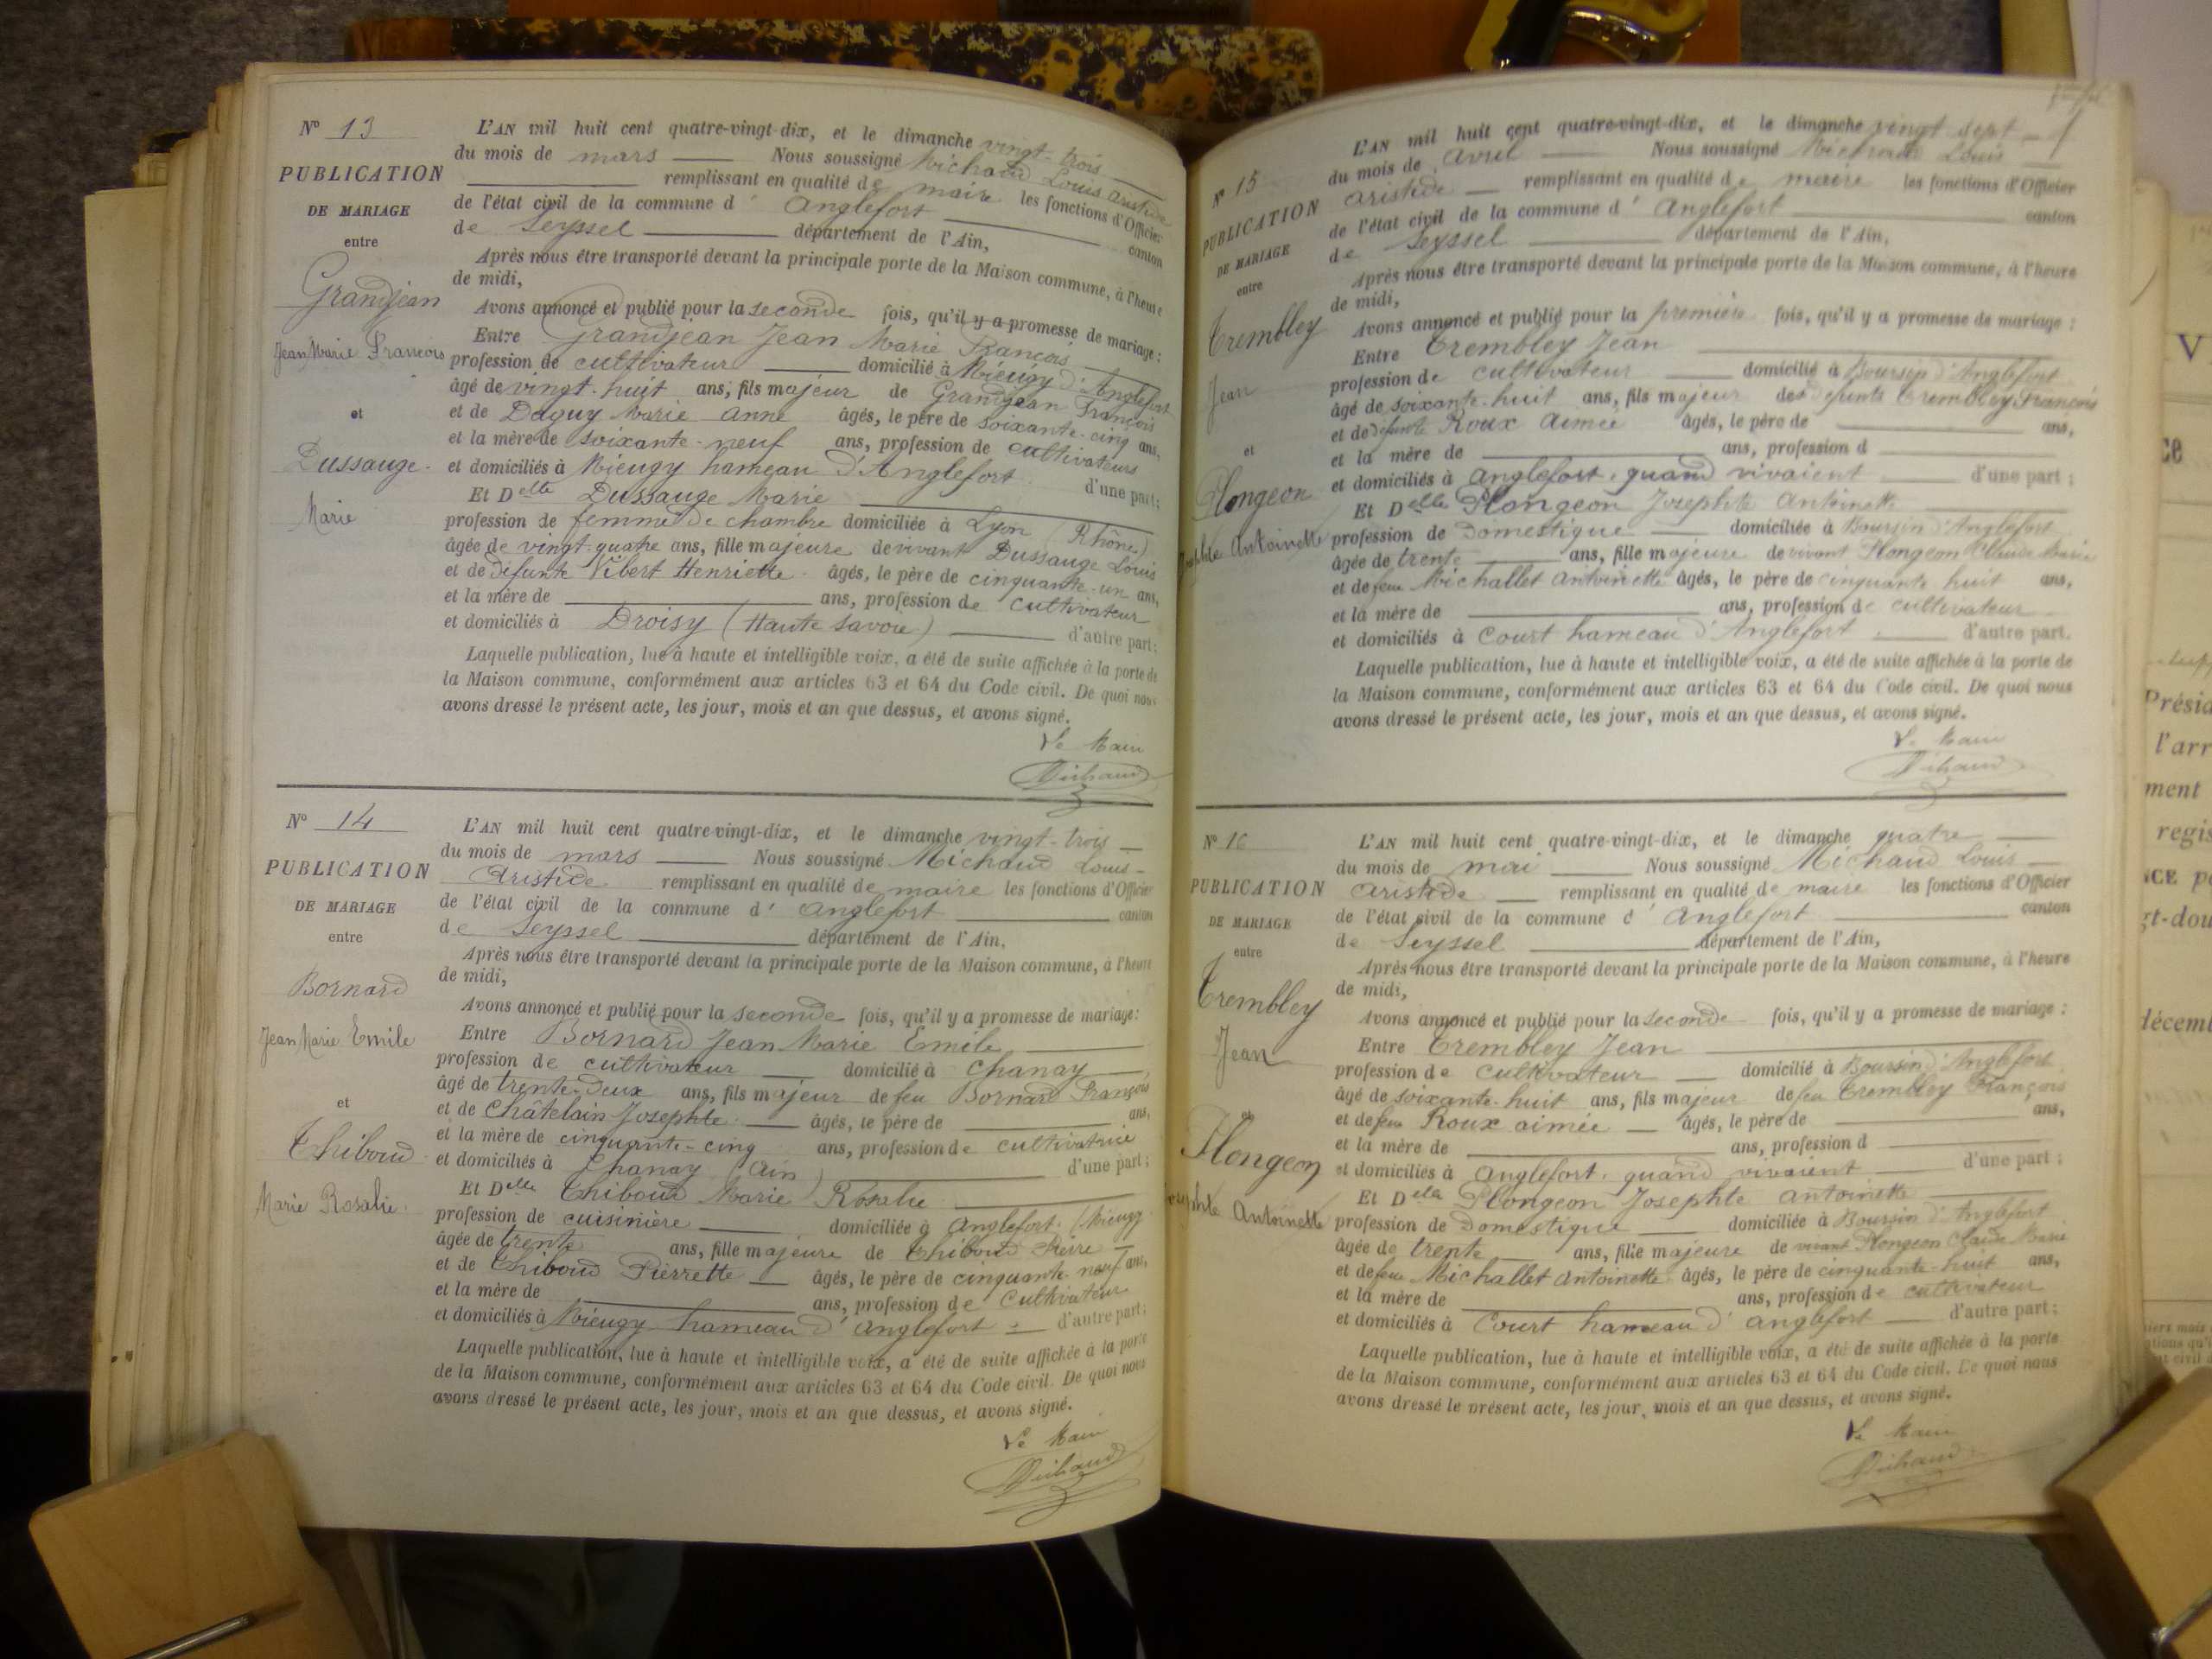 N° 13
PUBLICATION
DE MARIAGE
entre
Grandjean
Jean Marie François
et
Dussauge
Marie
L'AN mil huit cent quatre-vingt-dix, et le dimanche vingt-trois
du mois de mars Nous soussigné Michaud Louis Aristide
remplissant en qualité de maire les fonctions d'Officier
de l'état civil de la commune d' Anglefort canton
de Seyssel département de l'Ain,
Après nous être transporté devant la principale porte de la Maison commune, à l'heure
de midi,
Avons annoncé et publié pour la seconde fois, qu'il y a promesse de mariage :
Entre Grandjean Jean Marie François
profession de cultivateur domicilié à Mieugy d'Anglefort
âgé de vingt-huit ans, fils majeur de Grandjean François
et de Daguy Marie Anne âgés, le père de soixante-cinq ans,
et la mère de soixante-neuf ans, profession de cultivateurs
et domiciliés à Mieugy hameau d'Anglefort d'une part;
Et Delle Dussauge Marie
profession de femme de chambre domiciliée à Lyon (Rhône)
âgée de vingt-quatre ans, fille majeure de vivant Dussauge Louis
et de défunte Vibert Henriette âgés, le père de cinquante-un ans,
et la mère de ans, profession de cultivateur
et domiciliés à Droisy (Haute Savoie) d'autre part:
Laquelle publication, lue à haute et intelligible voix, a été de suite affichée à la porte de
la Maison commune, conformément aux articles 63 et 64 du Code civil. De quoi nous
avons dressé le présent acte, les jour, mois et an que dessus, et avons signé.
Le Maire
Michaud
N° 14
PUBLICATION
DE MARIAGE
entre
Bornard
Jean Marie Emile
et
Thiboud
Marie Rosalie
L'AN mil huit cent quatre-vingt-dix, et le dimanche vingt-trois
du mois de mars Nous soussigné Michaud Louis-
Aristide remplissant en qualité de maire les fonctions d'Officier
de l'état civil de la commune d' Anglefort canton
de Seyssel département de l'Ain,
Après nous être transporté devant la principale porte de la Maison commune, à l'heure
de midi,
Avons annoncé et publié pour la seconde fois, qu'il y a promesse de mariage:
Entre Bornard Jean Marie Emile
profession de cultivateur domicilié à Chanay
âgé de trente-deux ans, fils majeur de feu Bornard François
et de Châtelain Josephte âgés, le père de ans,
et la mère de cinquante-cinq ans, profession de cultivatrice
et domiciliés à Chanay (Ain) d'une part;
Et Delle Thiboud Marie Rosalie
profession de cuisinière domiciliée à Anglefort (Mieugy
âgée de trente ans, fille majeure de Thiboud Pierre
et de Thiboud Pierrette âgés, le père de cinquante-neuf ans,
et la mère de ans, profession de cultivateur
et domiciliés à Mieugy hameau d'Anglefort d'autre part;
Laquelle publication, lue à haute et intelligible voix, a été de suite affichée à la porte
de la Maison commune, conformément aux articles 63 et 64 du Code civil. De quoi nous
avons dressé le présent acte, les jour, mois et an que dessus, et avons signé.
Le Maire
Michaud
N° 15
PUBLICATION
DE MARIAGE
entre
Trembley
Jean
et
Plongeon
Josephte Antoinette
L'AN mil huit cent quatre-vingt-dix, et le dimanche vingt sept
du mois de avril Nous soussigné Michaud Louis
Aristide remplissant en qualité de maire les fonctions d'Officier
de l'état civil de la commune d' Anglefort canton
de Seyssel département de l'Ain,
Après nous être transporté devant la principale porte de la Maison commune, à l'heure
de midi,
Avons annoncé et publié pour la première fois, qu'il y a promesse de mariage :
Entre Trembley Jean
profession de cultivateur domicilié à Boursin d'Anglefort
âgé de soixante-huit ans, fils majeur des défunts Trembley François
et de défunte Roux Aimée âgés, le père de ans,
et la mère de ans, profession d
et domiciliés à Anglefort, quand vivaient d'une part ;
Et Delle Plongeon Josephte Antoinette
profession de Domestique domiciliée à Boursin d'Anglefort
âgée de trente ans, fille majeure de vivant Plongeon Claude Marie
et de feue Michallet Antoinette âgés, le père de cinquante huit ans,
et la mère de ans, profession de cultivateur
et domiciliés à Court hameau d'Anglefort d'autre part.
Laquelle publication, lue à haute et intelligible voix, a été de suite affichée à la porte de
la Maison commune, conformément aux articles 63 et 64 du Code civil. De quoi nous
avons dressé le présent acte, les jour, mois et an que dessus, et avons signé.
Le Maire
Michaud
N° 16
PUBLICATION
DE MARIAGE
entre
Trembley
Jean
et
Plongeon
Josephte Antoinette
L'AN mil huit cent quatre-vingt-dix, et le dimanche quatre
du mois de mai Nous soussigné Michaud Louis
Aristide remplissant en qualité de maire les fonctions d'Officier
de l'état civil de la commune d' Anglefort canton
de Seyssel département de l'Ain,
Après nous être transporté devant la principale porte de la Maison commune, à l'heure
de midi,
Avons annoncé et publié pour la seconde fois, qu'il y a promesse de mariage :
Entre Trembley Jean
profession de cultivateur domicilié à Boursin d'Anglefort
âgé de soixante-huit ans, fils majeur de feu Trembley François
et de feu Roux aimée âgés, le père de ans,
et la mère de ans, profession d
et domiciliés à Anglefort, quand vivaient d'une part ;
Et Delle Plongeon Josephte Antoinette
profession de Domestique domiciliée à Boursin d'Anglefort
âgée de trente ans, fille majeure de vivant Plongeon Claude Marie
et de feue Michallet Antoinette âgés, le père de cinquante-huit ans,
et la mère de ans, profession de cultivateur
et domiciliés à Court hameau d'Anglefort d'autre part;
Laquelle publication, lue à haute et intelligible voix, a été de suite affichée à la porte
de la Maison commune, conformément aux articles 63 et 64 du Code civil. De quoi nous
avons dressé le présent acte, les jour, mois et an que dessus, et avons signé.
Le Maire
Michaud
V
ce
Présid
l'arr
ment
regis
NCE po
gt-dou
décemb